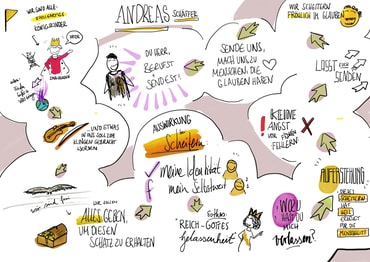 WIR SIND ALLE
KÖNIGSKINDER
ANDREAS SCHÄFER
DU HERR,
BERUFST
SENDEST!
SENDE UNS,
MACH UNS ZU
MENSCHEN, DIE
GLAUBEN HABEN
WIR SCHEITERN
FRÖHLICH IM GLAUBEN
LASST EUCH
SENDEN
UND ETWAS
IN UNS SOLL ZUM
KLINGEN GEBRACHT
WERDEN
AUSWIRKUNG
Scheitern
meine Identität
mein Selbstwert
! KEINE
ANGST
VOR
FEHLERN
ALLES GEBEN,
UM DIESEN
SCHATZ ZU ERHALTEN
REICH-GOTTES
gelassenheit
WOZU
HAST DU
MICH
verlassen?
AUFERSTEHUNG
SCHEITERN
HAT
FÜR DIE
MENSCHHEIT